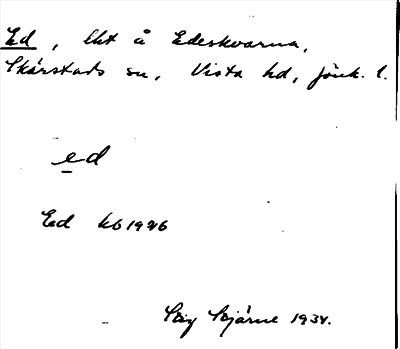 Ed, lht å Edeskvarna,
Skärstads sn, Vista hd, Jönk. l.
ed
Ed kb 1926
Stig Bjärne 1934.